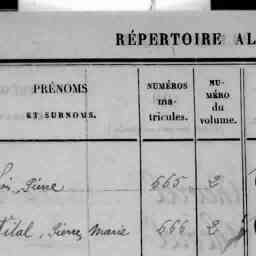 RÉPERTOIRE AL
PRÉNOMS
ET SURNOMS.
NUMÉROS
ma-
tricules.
NU-
MÉRO
du
volume.
Pierre 665 2
Vital, Pierre, Marie 666 2